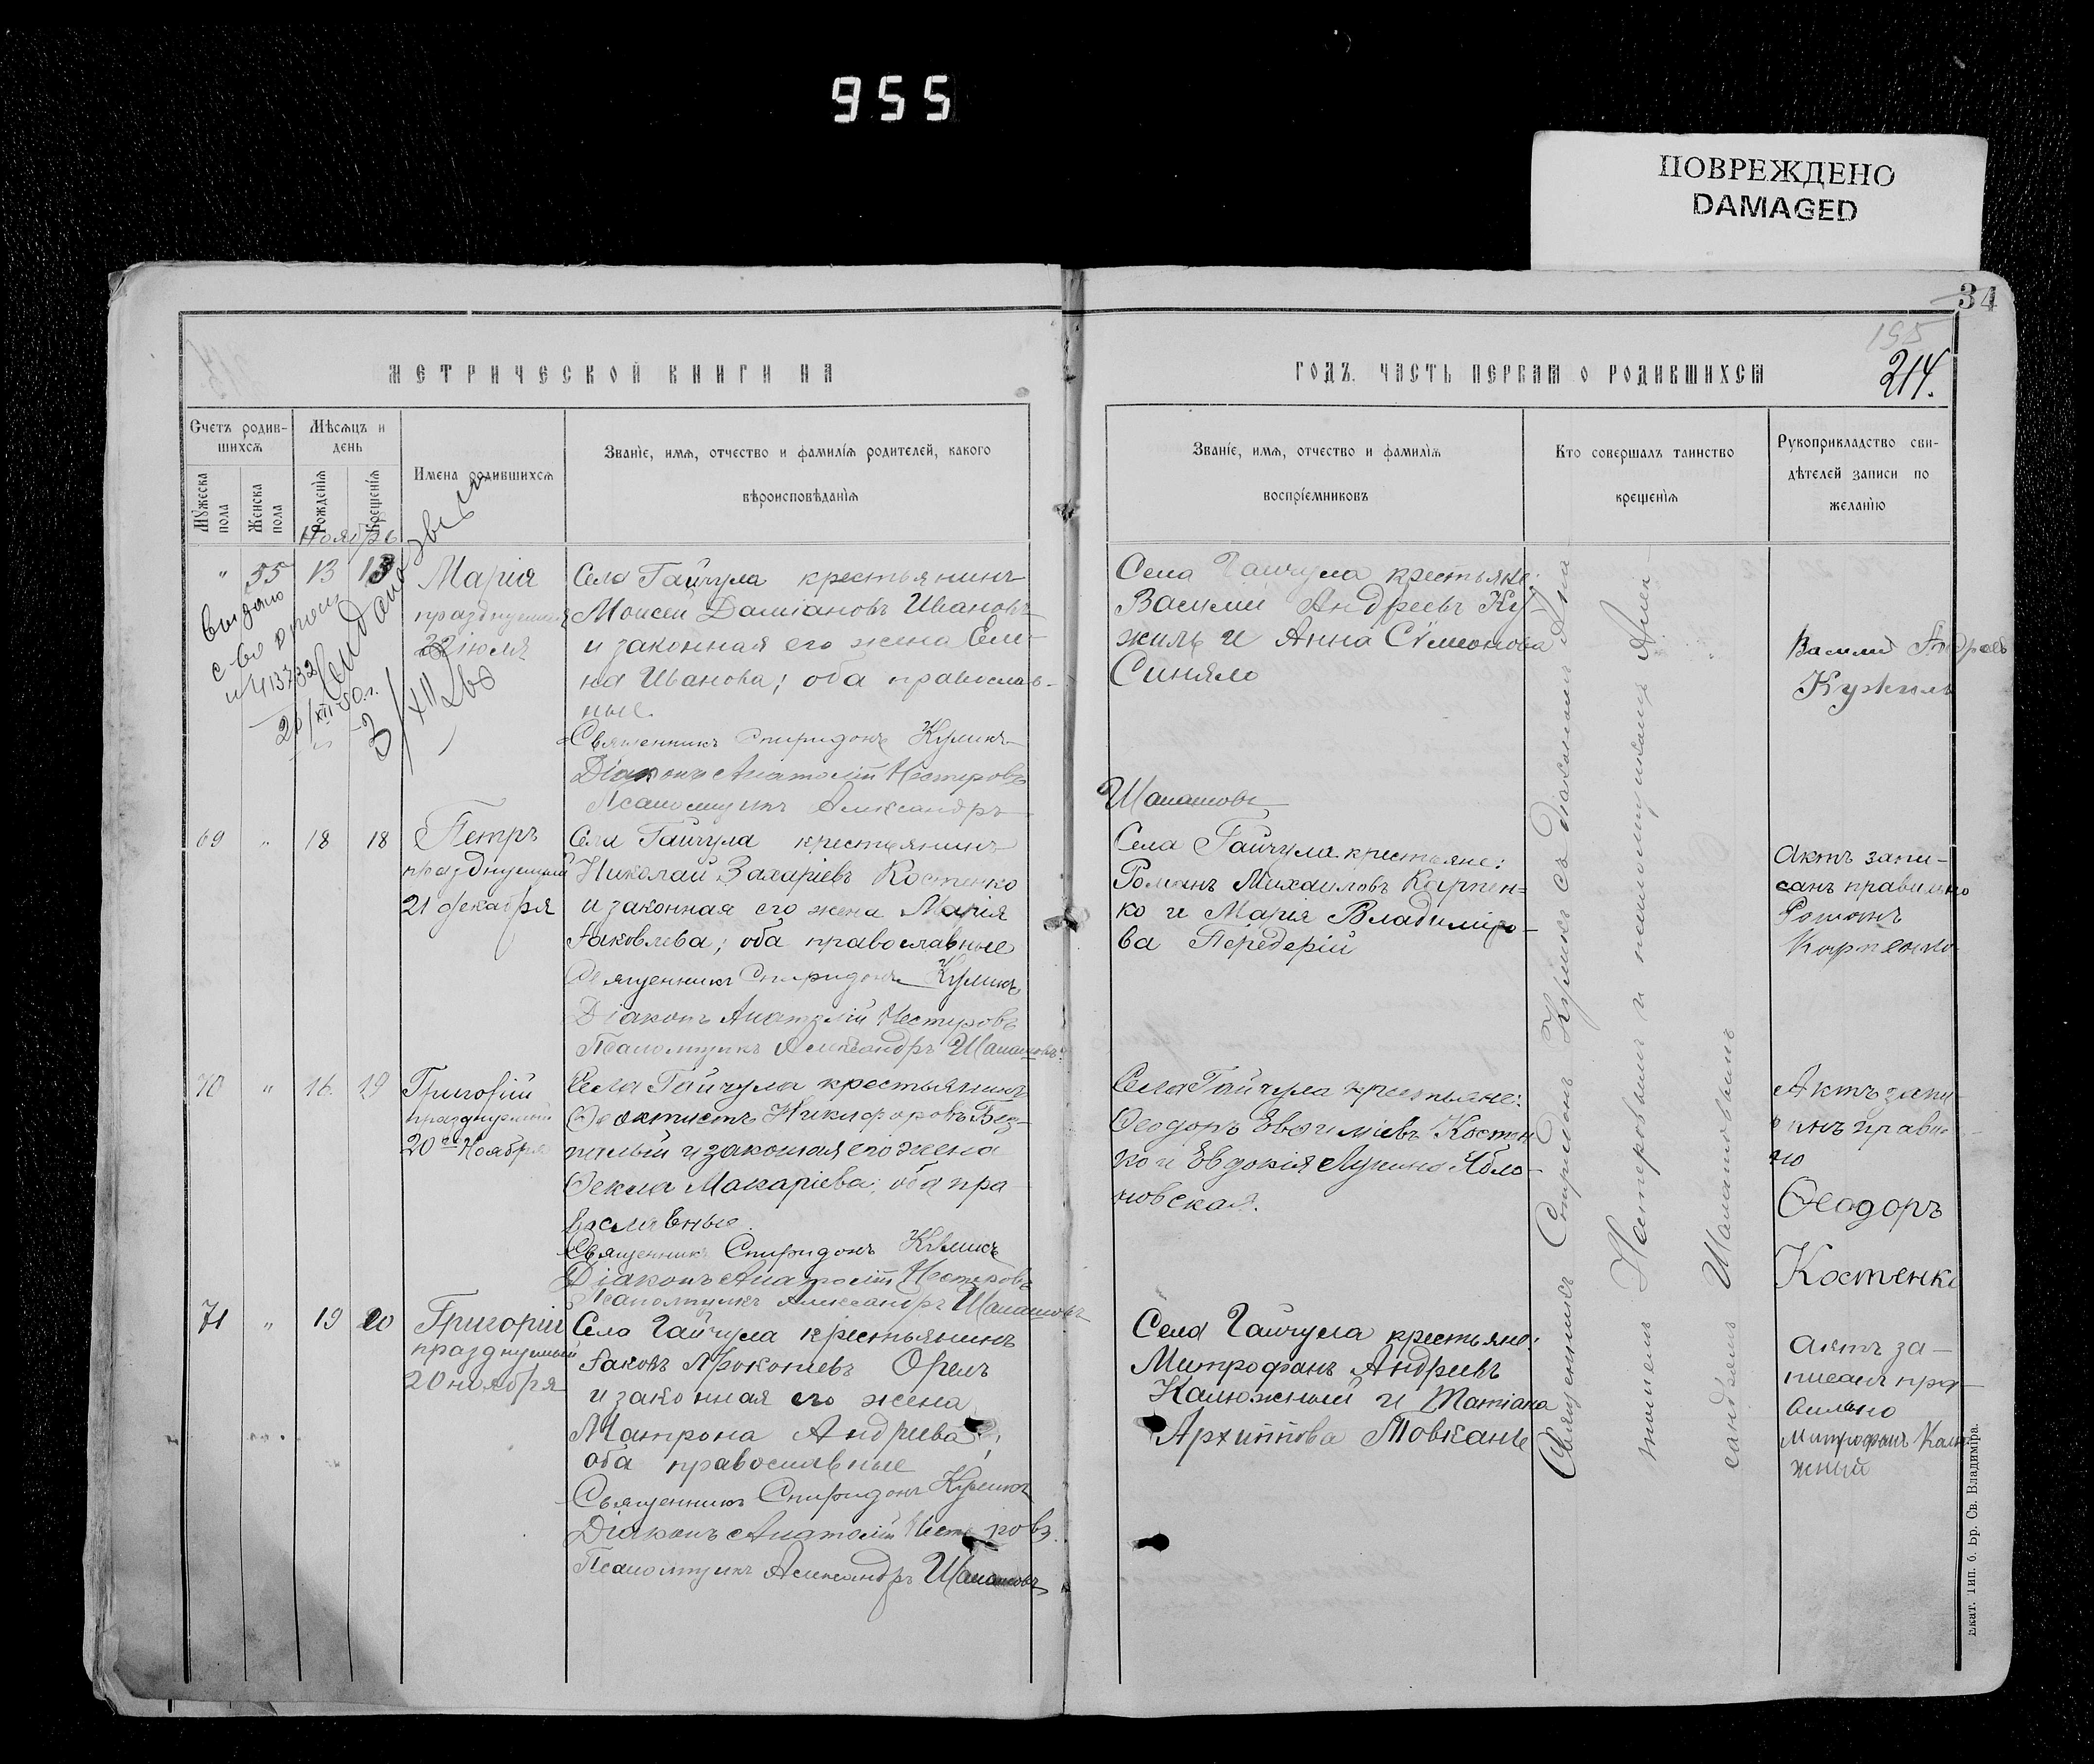 955
ПОВРЕЖДЕНО
DAMAGED
34
195
214.
МЕТРИЧЕСКОЙ КНИГИ НА
ГОДЪ. ЧАСТЬ ПЕРВАЯ О РОДИВШИХСЯ
Счетъ родив-
шихся
Мужеска
пола
Женска
пола
Мѣсяцъ и
день
Рожденія
Крещенія
Имена родившихся
Званіе, имя, отчество и фамилія родителей, какого
вѣроисповѣданія
Званіе, имя, отчество и фамилія
воспріемниковъ
Кто совершалъ таинство
крещенія
Рукоприкладство сви-
дѣтелей записи по
желанію
Ноябрь
" 55 13 13
Марія
празднуемая
22 іюля
выдано
с-во
20/XII 50 г.
Села Гайчула крестьянинъ
Моисей Даміановъ Ивановъ
и законная его жена Еле-
на Иванова; оба православ-
ные.
Священникъ Спиридонъ Куликъ
Діаконъ Анатолій Нестеровъ
Псаломщикъ Александръ
Шаламовъ
Села Гайчула крестьяне:
Василій Андреевъ Ку-
жиль и Анна Сѵмеонова
Синяло
Василій Андреевъ
Кужиль
69 " 18 18
Петръ
празднуемый
21 декабря
Села Гайчула крестьянинъ
Николай Захаріевъ Костенко
и законная его жена Марія
Іаковлева; оба православные
Священникъ Спиридонъ Куликъ
Діаконъ Анатолій Нестеровъ
Псаломщикъ Александръ Шаламовъ
Села Гайчула крестьяне:
Романъ Михаиловъ Карпен-
ко и Марія Владиміро-
ва Передерій
Актъ запи-
санъ правильно
Романъ
Карпенко
70 " 16. 19
Григорій
празднуемый
20 го Ноября
Села Гайчула крестьянинъ
Ѳеоктистъ Никифоровъ Без-
палый и законная его жена
Ѳекла Макаріева; оба пра
вославные.
Священникъ Спиридонъ Куликъ
Діаконъ Анатолій Нестеровъ
Псаломщикъ Александръ Шаламовъ
Села Гайчула крестьяне:
Ѳеодоръ Евѳиміевъ Костен
ко и Евдокія Лукина Ябло-
новская.
Актъ запи
санъ правиль
но
Ѳеодоръ
Костенко
71 " 19 20
Григорій
празднуемый
20 ноября
Села Гайчула крестьянинъ
Іаковъ Прокопіевъ Орелъ
и законная его жена
Матрона Андреева;
оба православные
Священникъ Спиридонъ Куликъ
Діаконъ Анатолій Нестеровъ
Псаломщикъ Александръ Шаламовъ
Села Гайчула крестьяне:
Митрофанъ Андреевъ
Калюжный и Татіана
Архиппова Товкань
Актъ за-
писанъ пра-
вильно
Митрофанъ Калю
жный
Священникъ Спиридонъ Куликъ съ Діакономъ Ана-
толіемъ Нестеровымъ и псаломщикомъ Алек-
сандромъ Шаламовымъ
Екат. Тип. б. Бр. Св. Владиміра.